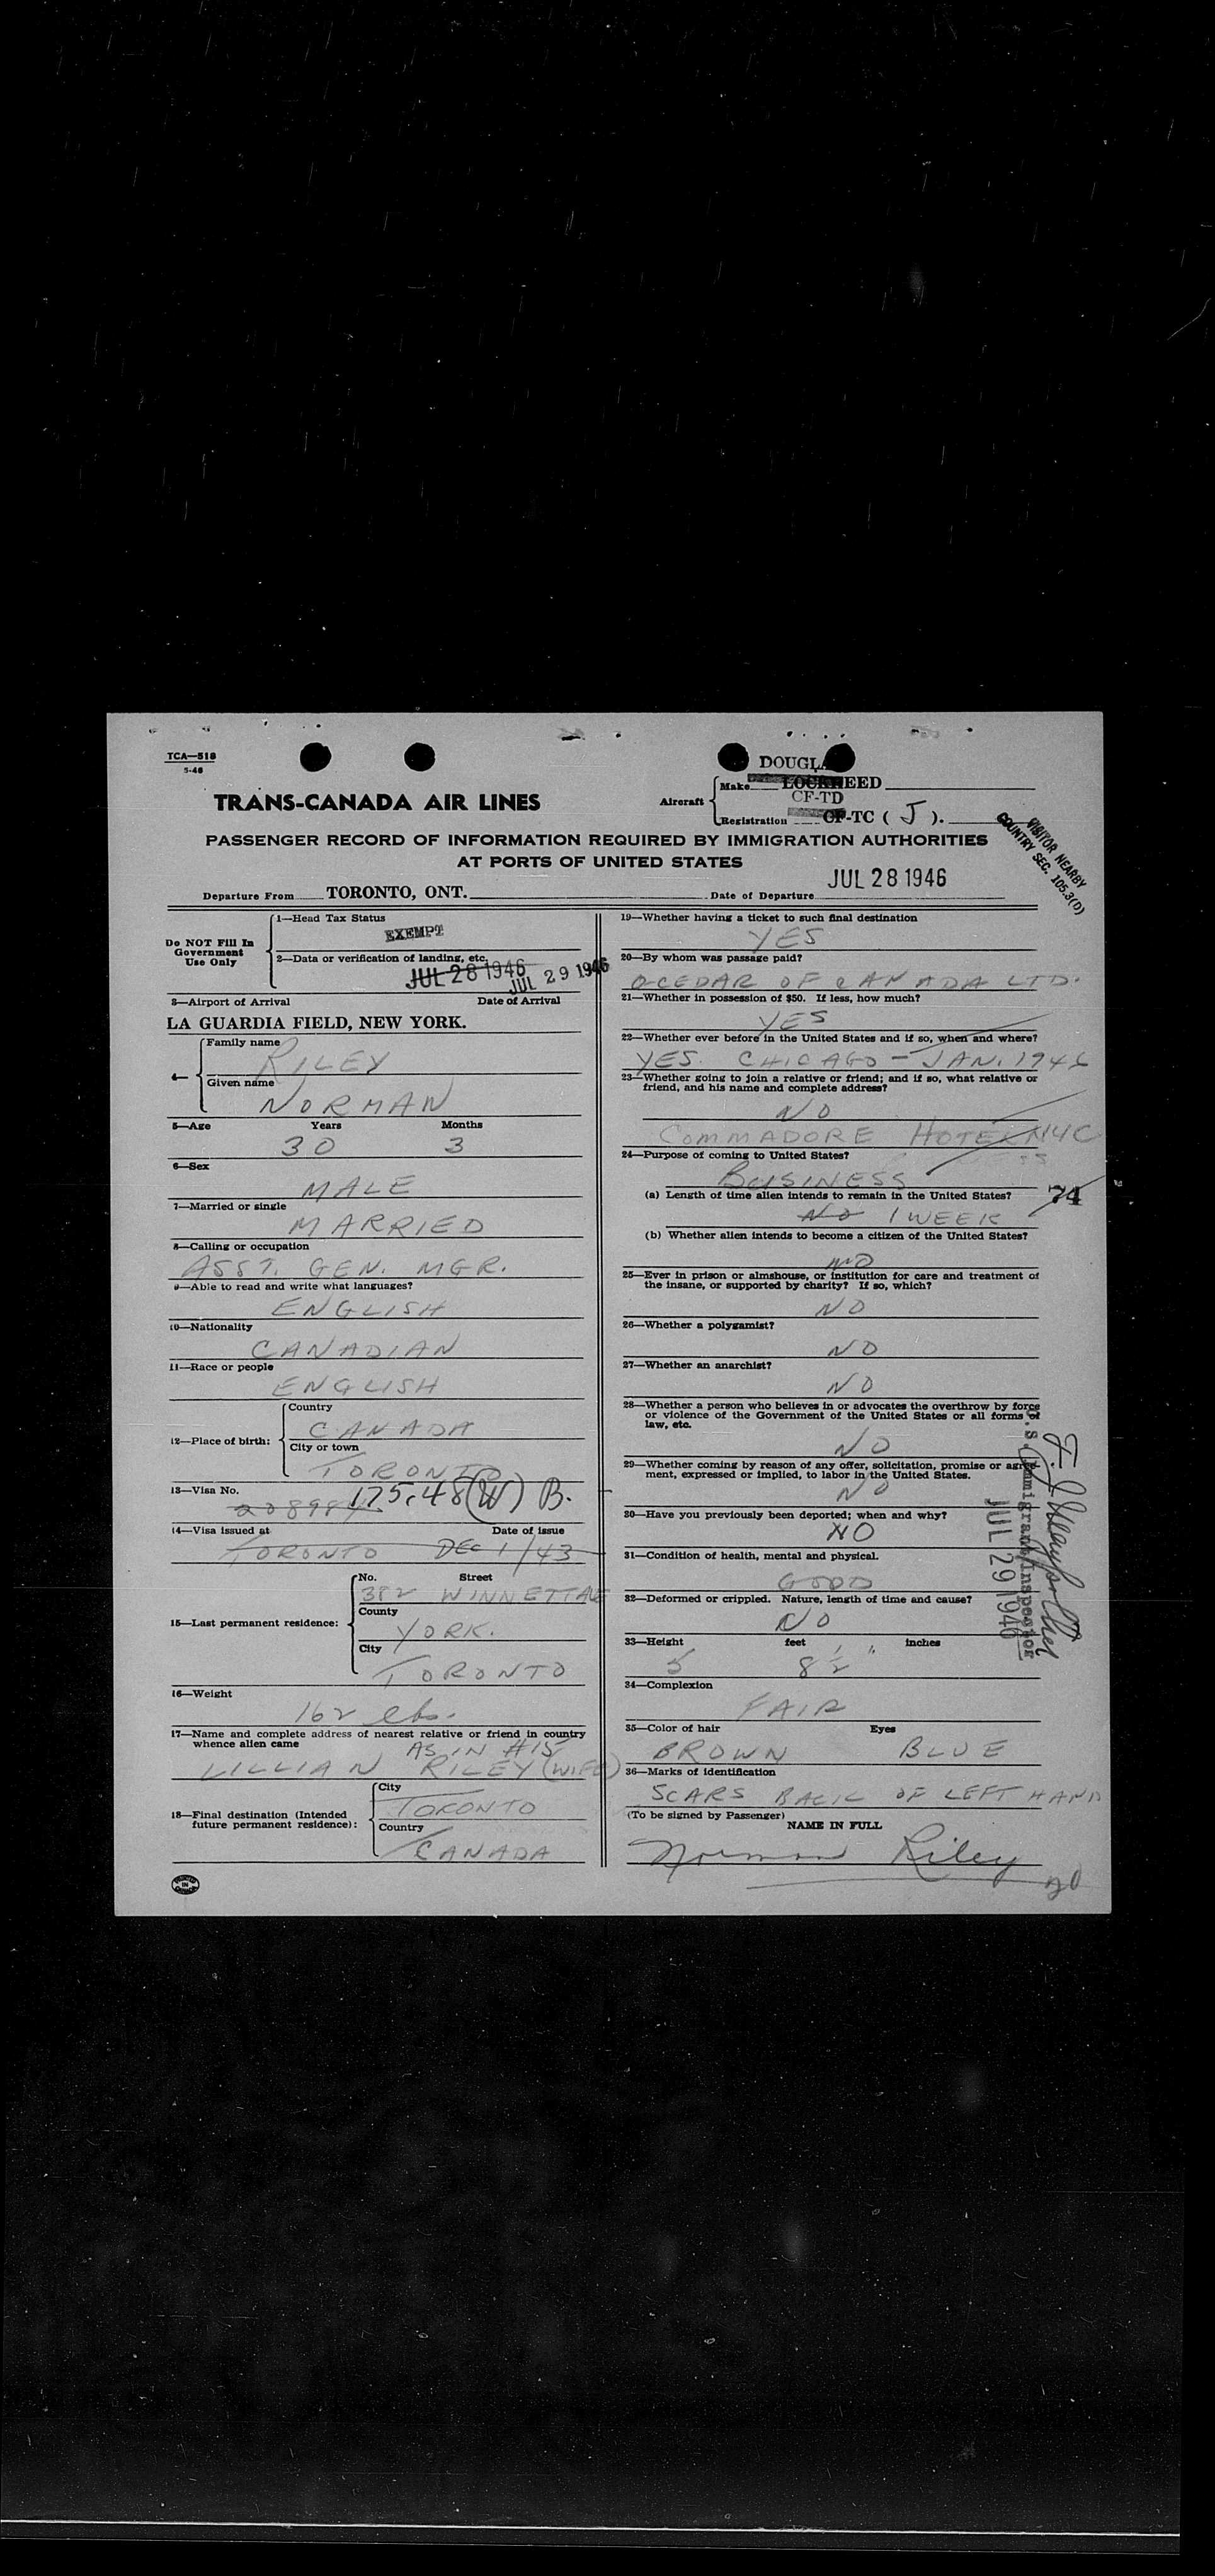 TCA—518
5-46
DOUGLAS
TRANS-CANADA AIR LINES
Aircraft
Make LOCKHEED
CF-TD
Registration CF-TC ( J ).
PASSENGER RECORD OF INFORMATION REQUIRED BY IMMIGRATION AUTHORITIES
AT PORTS OF UNITED STATES
VISITOR NEARBY
COUNTRY SEC. 105.3(D)
Departure From TORONTO, ONT. Date of Departure JUL 28 1946
Do NOT Fill In
Government
Use Only
1—Head Tax Status
EXEMPT
2—Data or verification of landing, etc.
JUL 28 1946 JUL 29 1946
3—Airport of Arrival Date of Arrival
LA GUARDIA FIELD, NEW YORK.
4— Family name
RILEY
Given name
NORMAN
5—Age Years Months
30 3
6—Sex
MALE
7—Married or single
MARRIED
8—Calling or occupation
ASST. GEN. MGR.
9—Able to read and write what languages?
ENGLISH
10—Nationality
CANADIAN
11—Race or people
ENGLISH
12—Place of birth:
Country
CANADA
City or town
TORONTO
13—Visa No. 175.48(W) B.
14—Visa issued at Date of issue
TORONTO DEC 1/43
15—Last permanent residence:
No. Street
382 WINNETT AVE
County
YORK.
City
TORONTO
16—Weight
162 lbs.
17—Name and complete address of nearest relative or friend in country
whence alien came
AS IN #15
LILLIAN RILEY (WIFE)
18—Final destination (Intended
future permanent residence):
City
TORONTO
Country
CANADA
19—Whether having a ticket to such final destination
YES
20—By whom was passage paid?
OCEDAR OF CANADA LTD.
21—Whether in possession of $50. If less, how much?
YES
22—Whether ever before in the United States and if so, when and where?
YES. CHICAGO – JAN. 1946
23—Whether going to join a relative or friend; and if so, what relative or
friend, and his name and complete address?
NO
COMMADORE HOTEL NYC
24—Purpose of coming to United States?
BUSINESS
(a) Length of time alien intends to remain in the United States?
74
NO 1 WEEK
(b) Whether alien intends to become a citizen of the United States?
NO
25—Ever in prison or almshouse, or institution for care and treatment of
the insane, or supported by charity? If so, which?
NO
26—Whether a polygamist?
NO
27—Whether an anarchist?
NO
28—Whether a person who believes in or advocates the overthrow by force
or violence of the Government of the United States or all forms of
law, etc.
NO
29—Whether coming by reason of any offer, solicitation, promise or agreement,
ment, expressed or implied, to labor in the United States.
NO
30—Have you previously been deported; when and why?
NO
31—Condition of health, mental and physical.
GOOD
32—Deformed or crippled. Nature, length of time and cause?
NO
33—Height feet inches
5 ' 8½ "
34—Complexion
FAIR
35—Color of hair Eyes
BROWN BLUE
36—Marks of identification
SCARS BACK OF LEFT HAND
(To be signed by Passenger)
NAME IN FULL
Norman Riley
U.S. Immigrant Inspector
JUL 29 1946